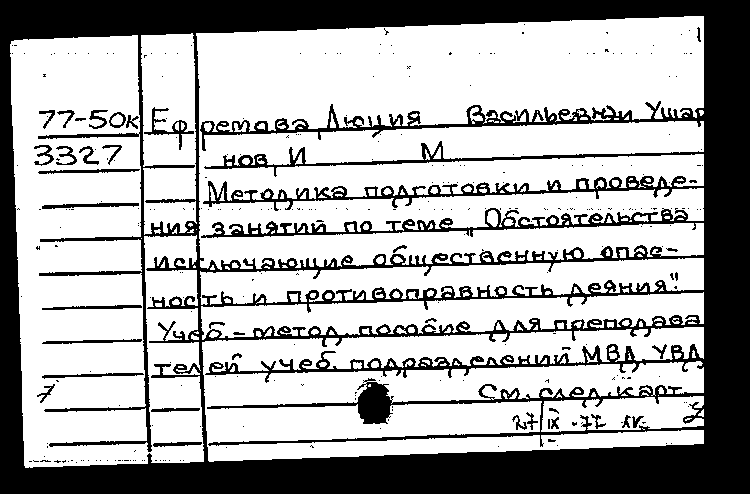 77-50к Ефремова, Люция Васильевна и Ушар
3327 нов, И М
Методика подготовки и проведе-
ния занятий по теме „Обстоятельства,
исключающие общественную опас-
ность и противоправность деяния".
Учеб.-метод. пособие для преподава
телей учеб. подразделений МВД, УВД
7 См. след. карт.
27/IX-77